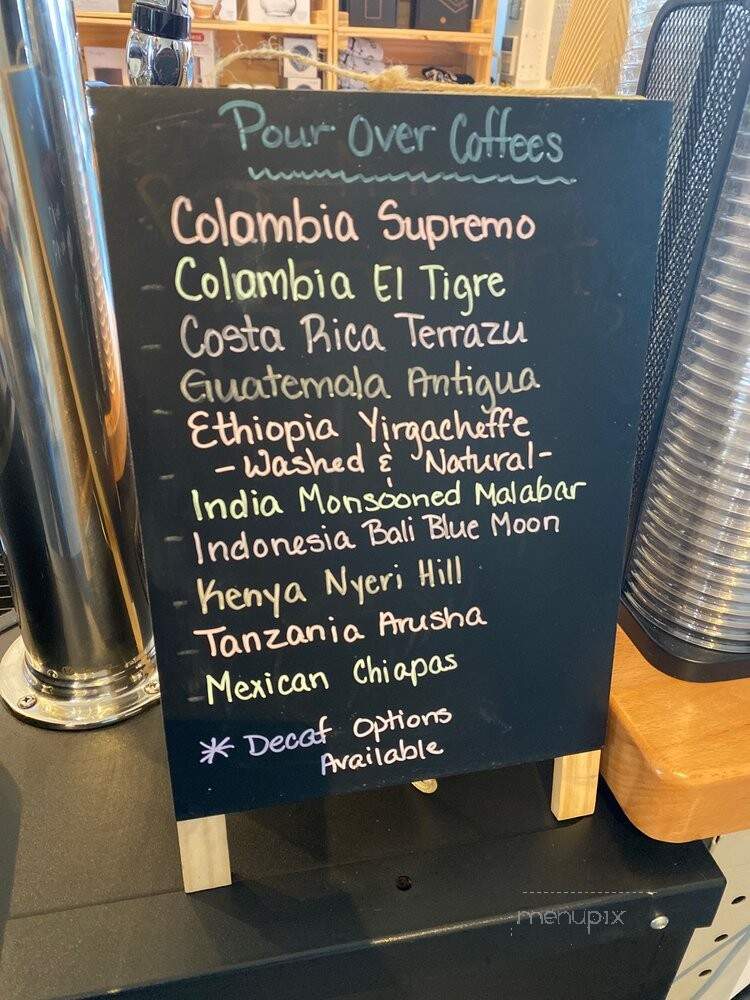 Pour Over Coffees
Colombia Supremo
Colombia El Tigre
Costa Rica Terrazu
Guatemala Antigua
Ethiopia Yirgacheffe
- Washed & Natural -
India Monsooned Malabar
Indonesia Bali Blue Moon
Kenya Nyeri Hill
Tanzania Arusha
Mexican Chiapas
* Decaf Options
Available
menupix